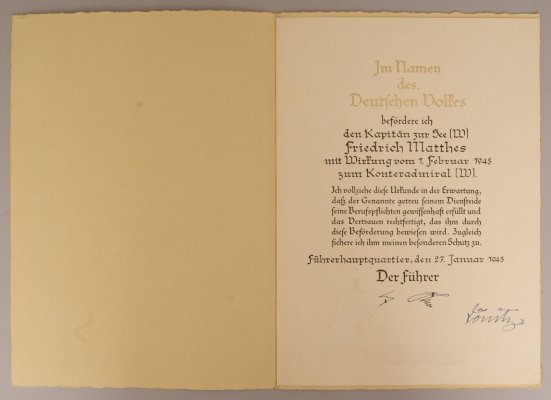 Im Namen
des
Deutschen Volkes
befördere ich
den Kapitän zur See (W)
Friedrich Matthes
mit Wirkung vom 1. Februar 1943
zum Konteradmiral (W).
Ich vollziehe diese Urkunde in der Erwartung,
daß der Genannte getreu seinem Diensteide
seine Berufspflichten gewissenhaft erfüllt und
das Vertrauen rechtfertigt, das ihm durch
diese Beförderung bewiesen wird. Zugleich
sichere ich ihm meinen besonderen Schutz zu.
Führerhauptquartier, den 27. Januar 1943
Der Führer
Dönitz